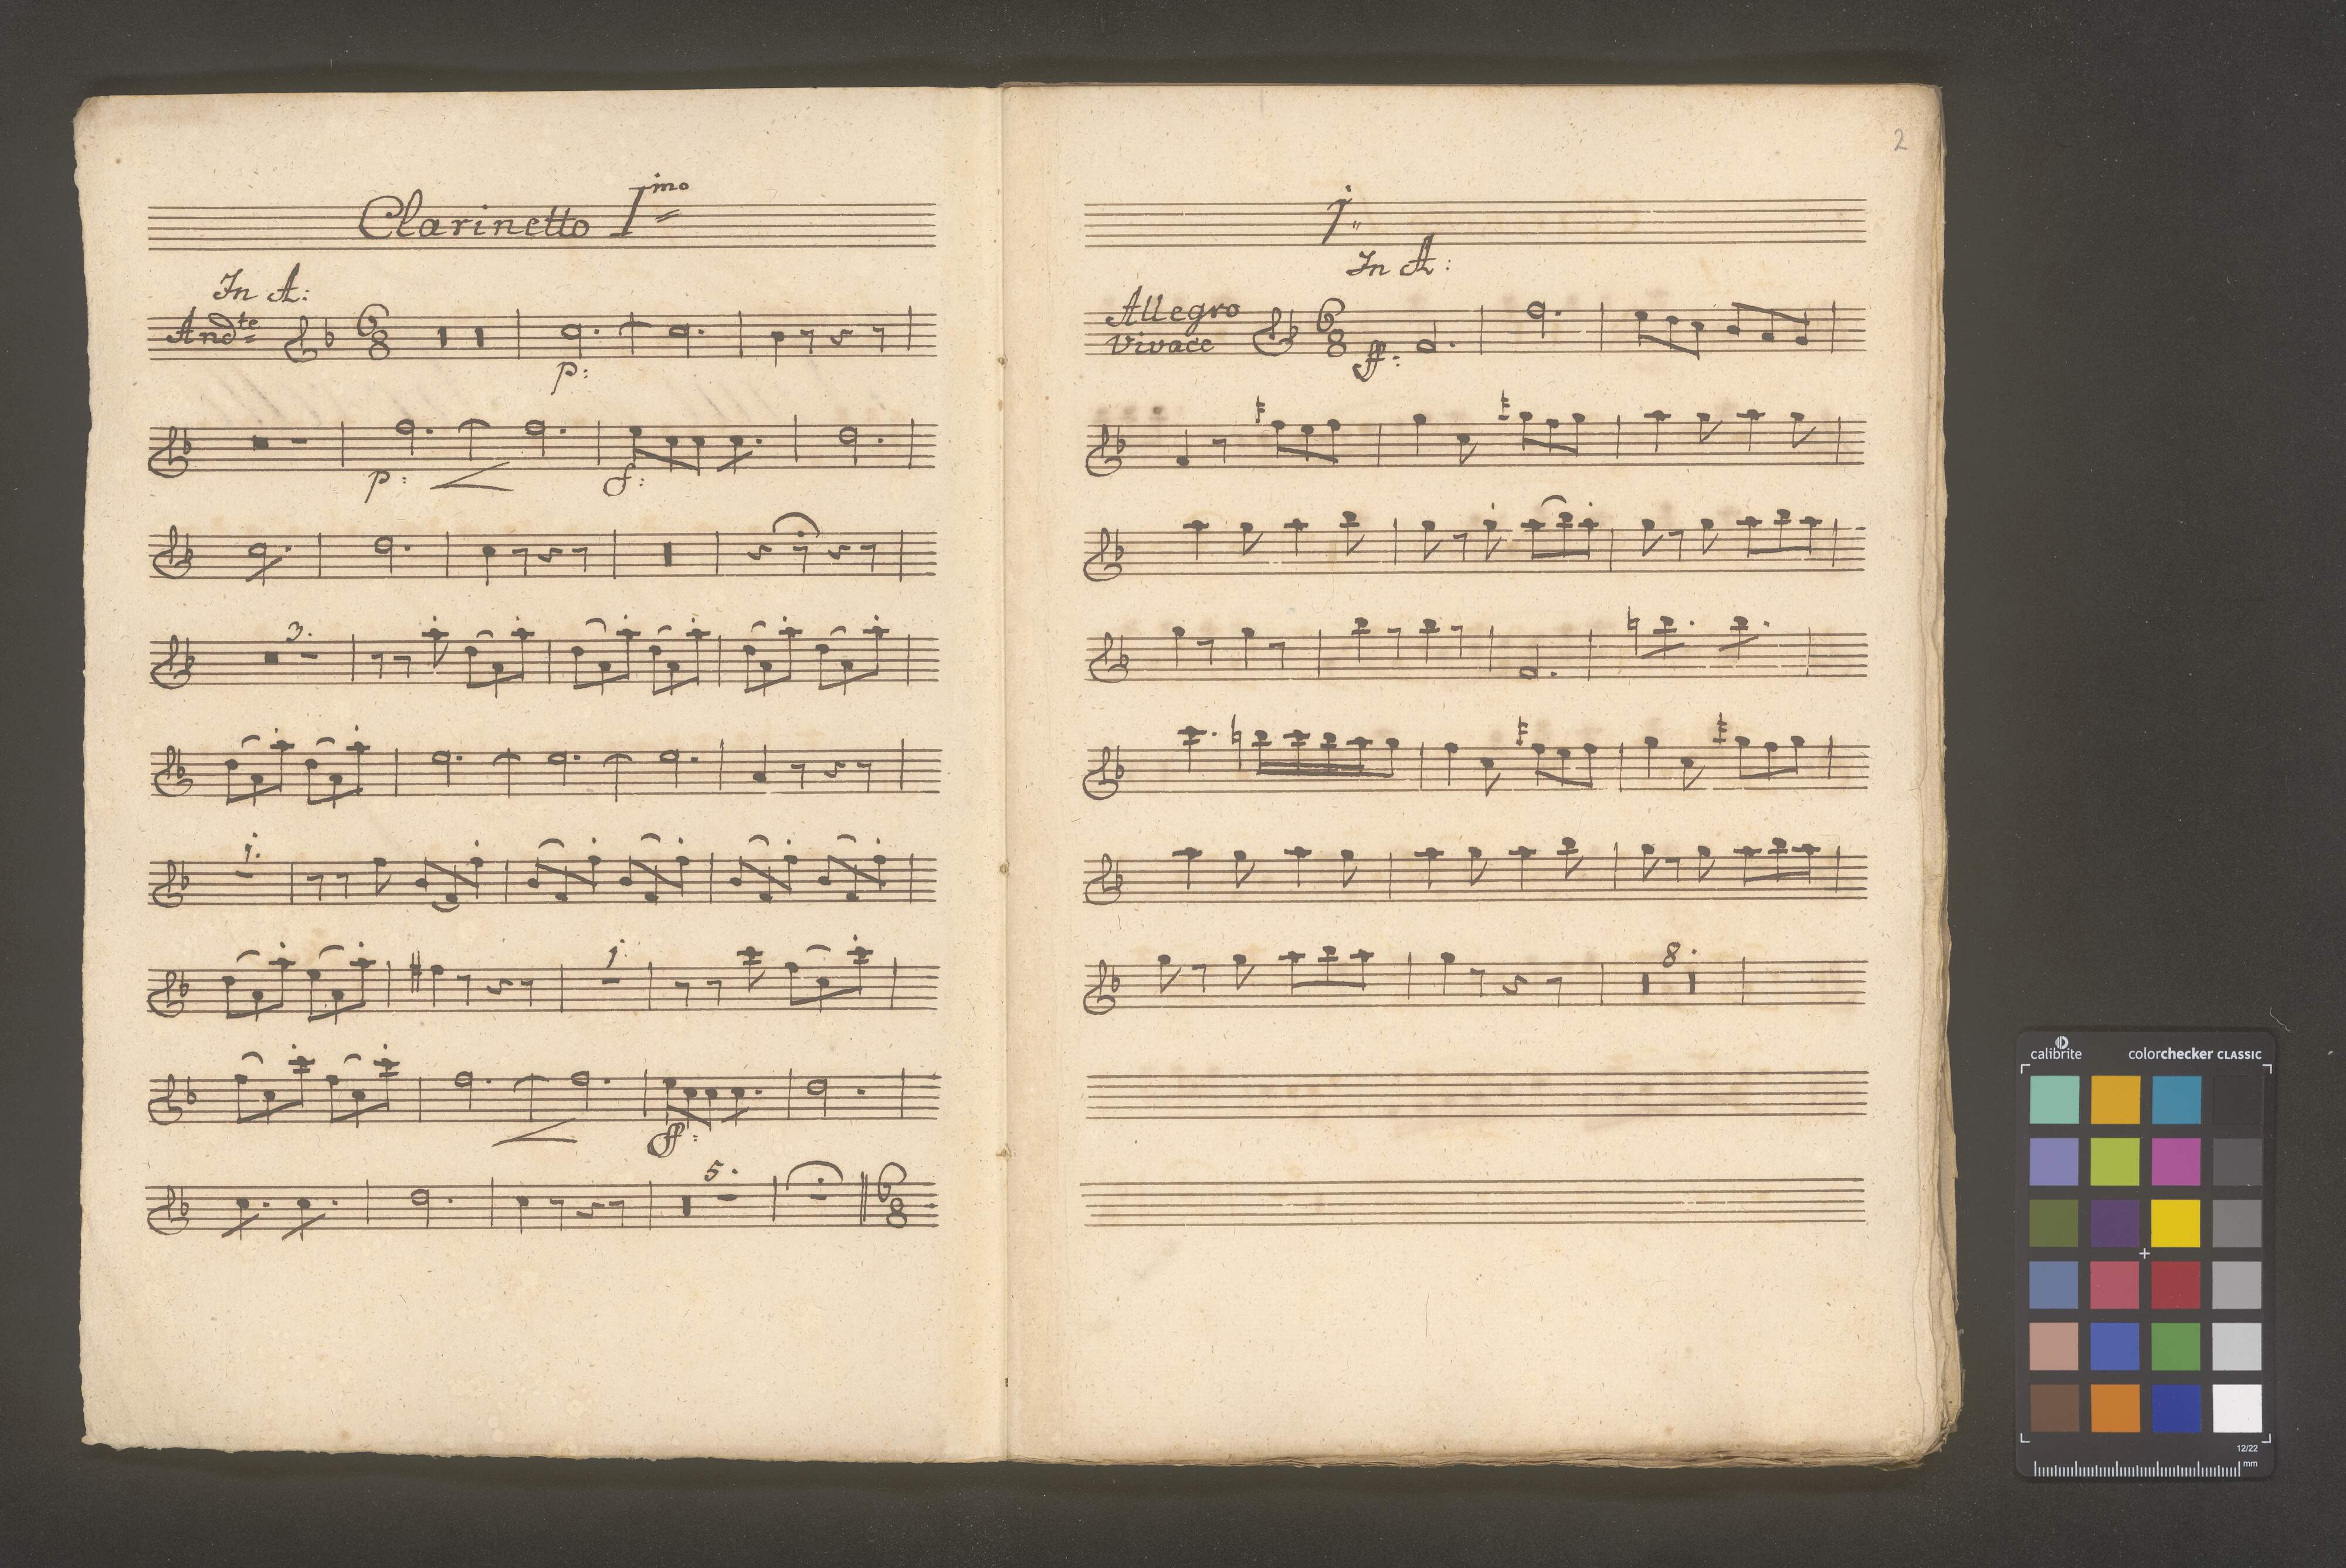 Clarinetto Imo
In A:
Andte 6 8
p:
p: f:
3.
1.
1.
ff:
5.
6 8
2
1.
In A:
Allegro
vivace 6 8
ff:
8.
calibrite colorchecker CLASSIC
12/22
mm